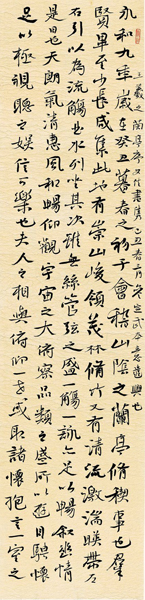 王羲之蘭亭序
永和九年歲在癸丑暮春之初于會稽山陰之蘭亭脩禊事也羣
賢畢至少長咸集此地有崇山峻領茂林脩竹又有清流激湍映帶左
右引以為流觴曲水列坐其次雖無絲管弦之盛一觴一詠亦足以暢敘幽情
是日也天朗氣清惠風和暢仰觀宇宙之大俯察品類之盛所以遊目騁懷
足以極視聽之娛信可樂也夫人之相與俯仰一世或取諸懷抱言一室之